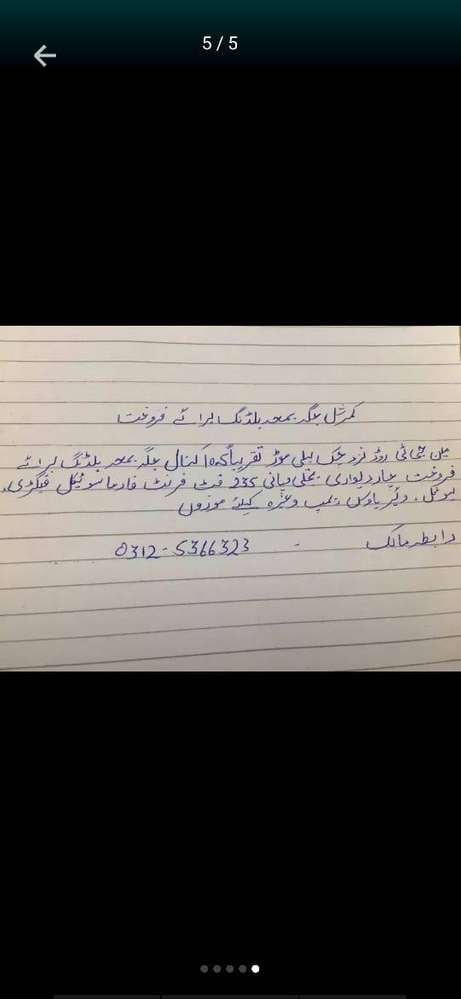 5 / 5
کمرشل جگہ بمعہ بلڈنگ برائے فروخت
مین جی ٹی روڈ نزد چک بیلی موڑ تقریباً کنال جگہ بمعہ بلڈنگ برائے
فروخت چار دیواری بجلی پانی 235 فٹ فرنٹ فارماسوٹیکل فیکٹری،
ہوٹل، ویئر ہاؤس پمپ وغیرہ کیلئے موزوں
رابطہ مالک - 0312-5366323